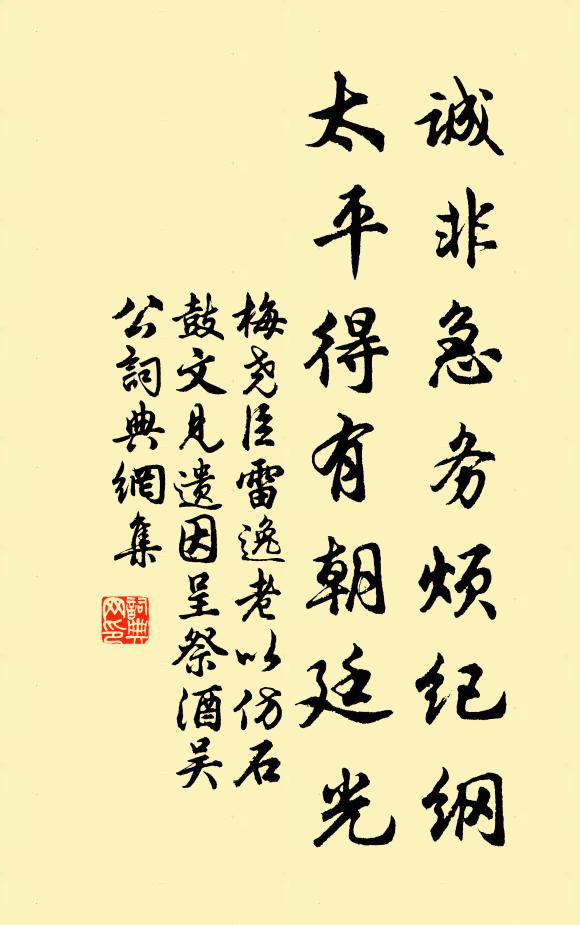 诚非急务烦纪纲
太平得有朝廷光
梅尧臣雷逸老以仿石
鼓文见遗因呈祭酒吴
公詞典網集
詞典
网印